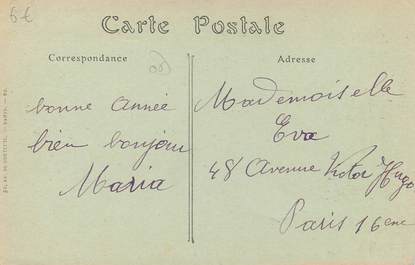 6€
Carte Postale
Correspondance
Adresse
bonne année
bien bonjour
Maria
Mademoiselle
Eva
48 Avenue Victor Hugo
Paris 16eme